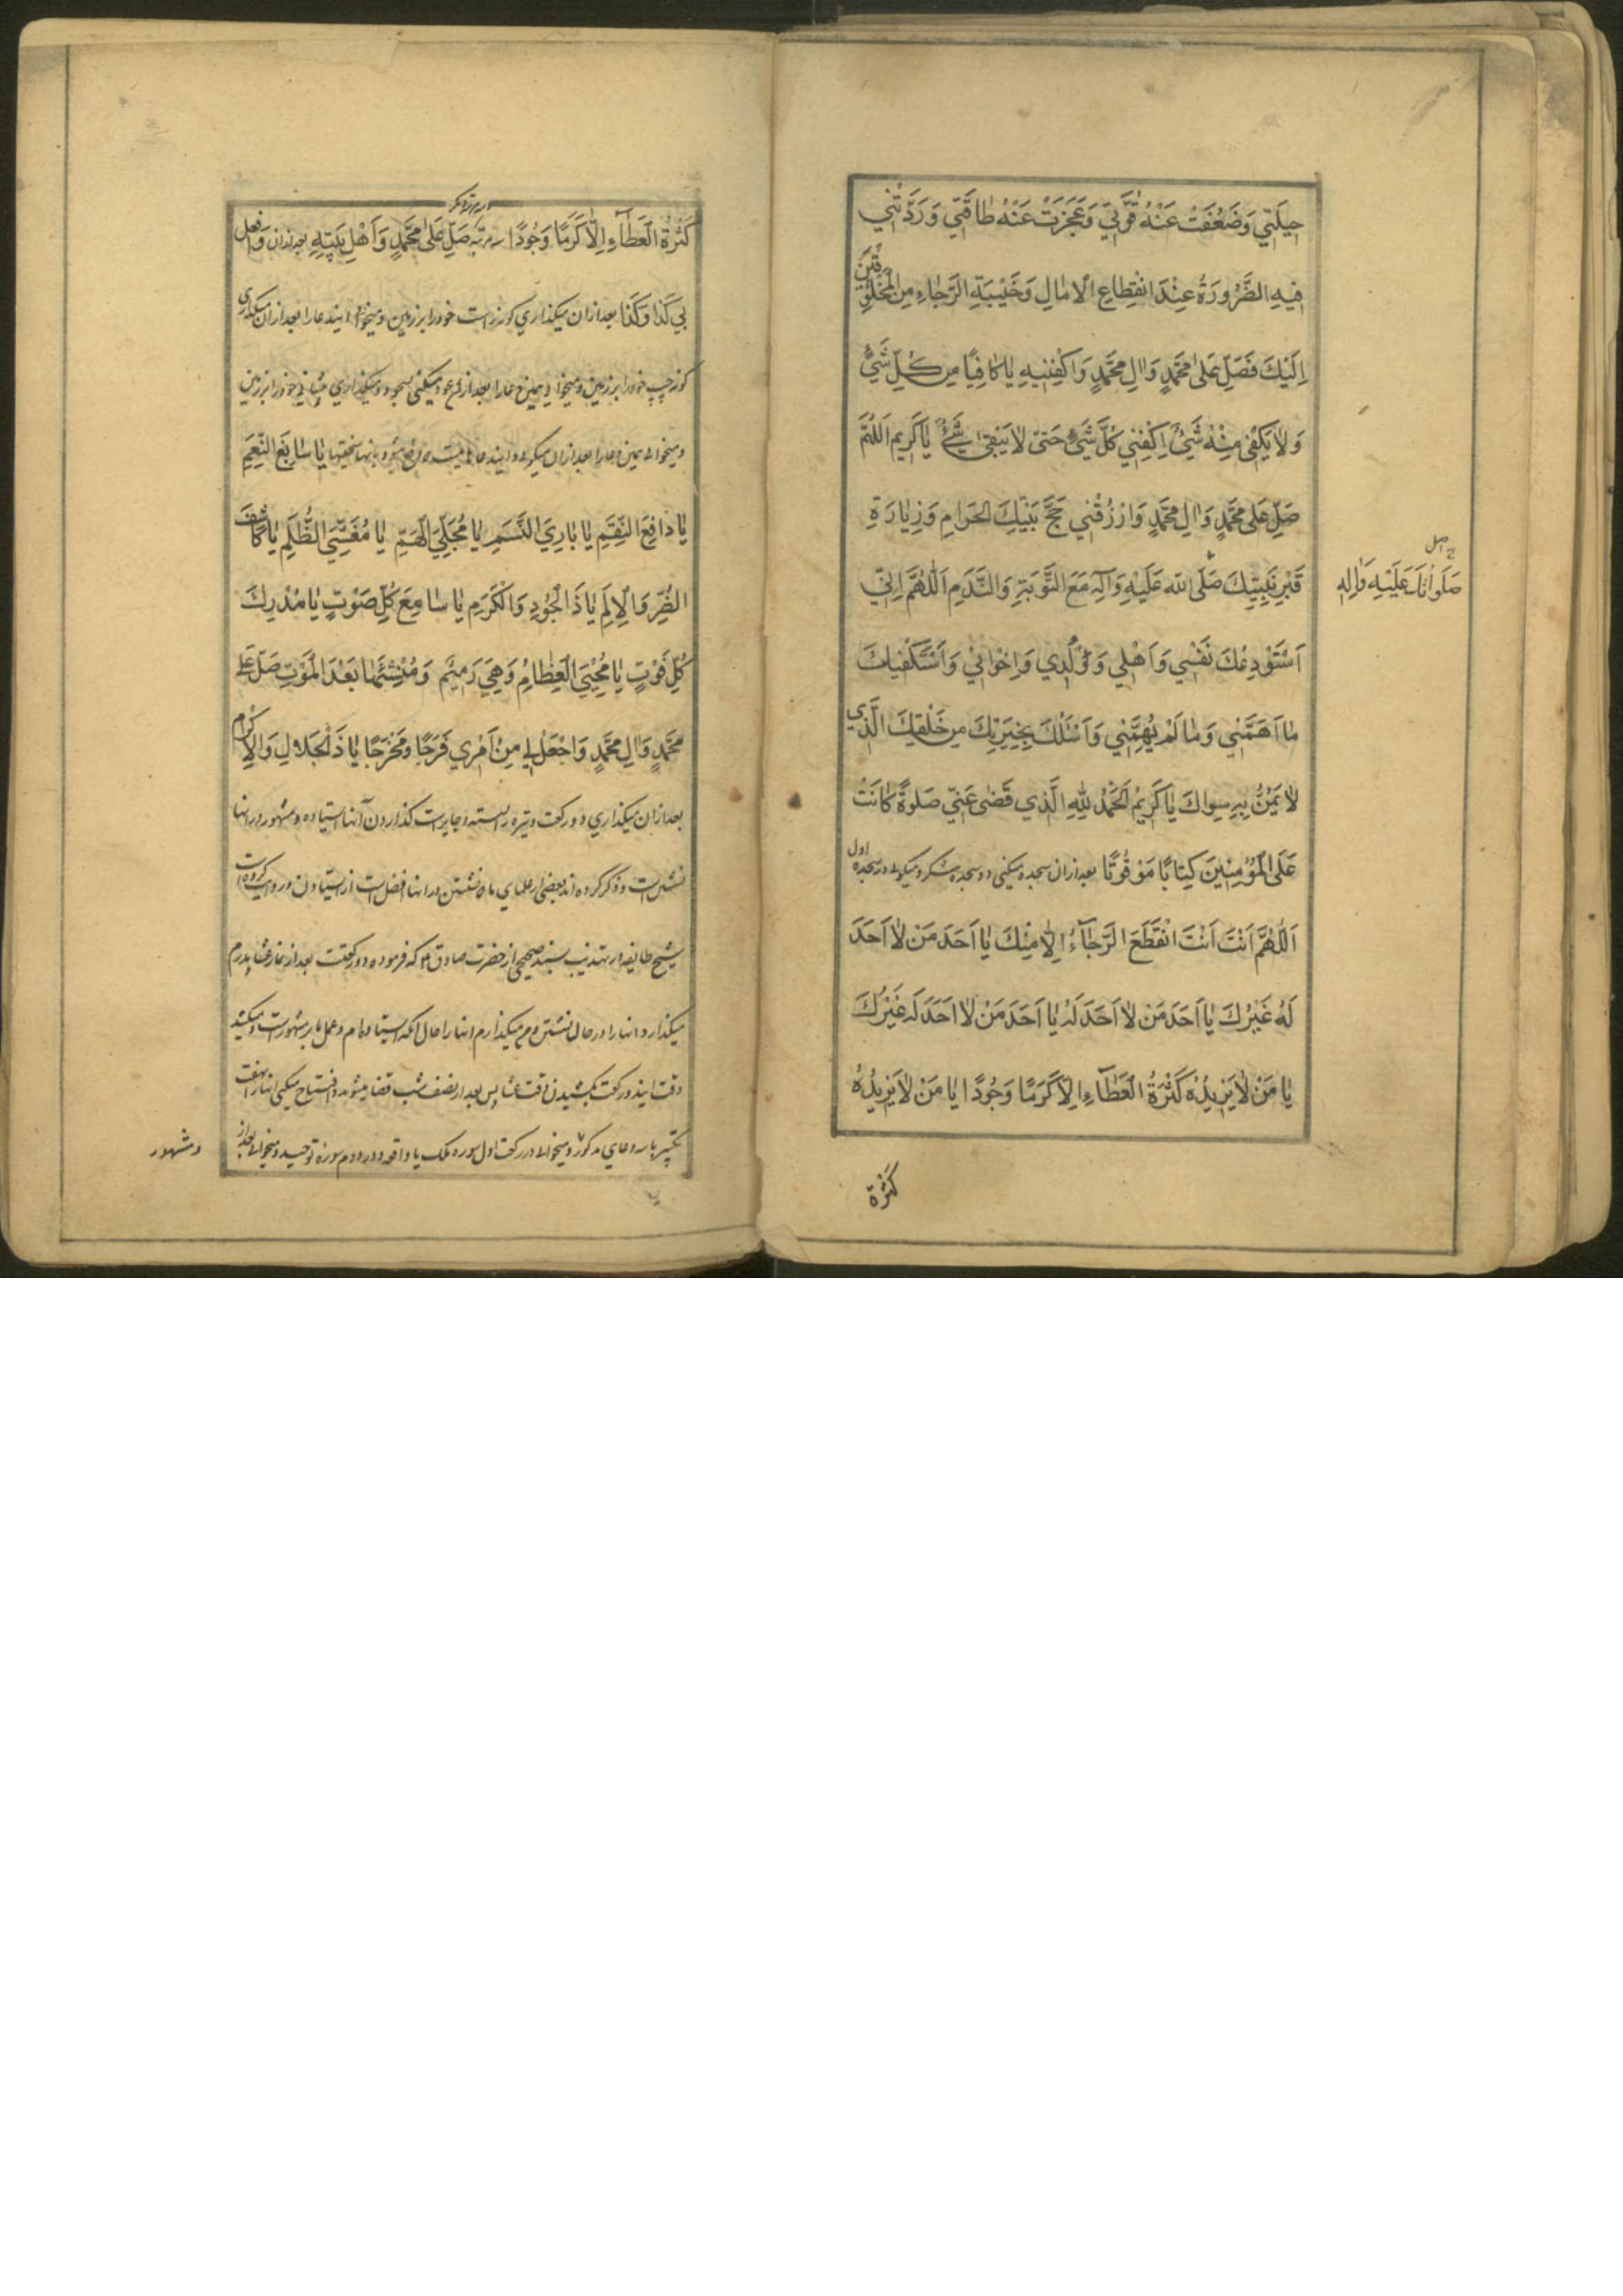 حِيلَتِي وَضَعُفَتْ عَنْهُ قُوَّتِي وَعَجَزَتْ عَنْهُ طاقَتِي وَرَدَّتْنِي
فِيهِ الضَّرُورَةُ عِنْدَ انْقِطاعِ الْامالِ وَخَيْبَةِ الرَّجاءِ مِنَ الْمَخْلُوقِينَ
اِلَيْكَ فَصَلِّ عَلىٰ مُحَمَّدٍ وَالِ مُحَمَّدٍ وَاكْفِنِيهِ يا كافِيًا مِن كُلِّ شَيْءٍ
وَلا يَكْفِى مِنْهُ شَيْءٌ اِكْفِنِي كُلَّ شَيْءٍ حَتّىٰ لا يَبْقىٰ شَيْءٌ يا كَرِيم اَللّٰهُمَّ
صَلِّ عَلىٰ مُحَمَّدٍ وَالِ مُحَمَّدٍ وَارْزُقْنِي حَجَّ بَيْتِكَ الْحَرامِ وَزِيارَةِ
قَبْرِ نَبِيِّكَ صَلَّى اللّه عَلَيْهِ وَآلِهِ مَعَ التَّوْبَةِ وَالنَّدَمِ اَللّٰهُمَّ اِنّي
صَلَواتُكَ عَلَيْهِ وَالِهِ
اَسْتَوْدِعُكَ نَفْسِي وَاَهْلِي وَوُلْدِي وَاِخْوانِي وَاَسْتَكْفِيكَ
ما اَهَمَّنِي وَما لَمْ يُهِمَّنِي وَاَسْئَلُكَ بِخِيَرَتِكَ مِن خَلْقِكَ الَّذِي
لا يَمُنُّ بِهِ سِواكَ يا كَرِيمُ اَلْحَمْدُ لِلّٰهِ الَّذِي قَضىٰ عَنِّي صَلوةً كانَتْ
عَلَى الْمُؤْمِنِينَ كِتابًا مَوْقُوتًا بعد از ان سجده میکنی دو سجده شکر و میکوئی در سجده اول
اَللّٰهُمَّ اَنْتَ اَنْتَ انْقَطَعَ الرَّجآءُ اِلّا مِنْكَ يا اَحَدَ مَن لا اَحَدَ
لَهُ غَيْرُكَ يا اَحَدَ مَن لا اَحَدَ لَهُ يا اَحَدَ مَنْ لا اَحَدَ لَه غَيْرُكَ
يا مَنْ لا يَزِيدُهُ كَثْرَةُ الْعَطآءِ اِلّا كَرَمًا وَجُودًا يا مَنْ لا يَزِيدُهُ
كَثْرَة
كَثْرَةُ الْعَطآءِ اِلّا كَرَمًا وَجُودًا سه مرتبه صَلِّ عَلىٰ مُحَمَّدٍ وَاَهْلِ بَيْتِهِ بعد از ان وَافْعَل
بِي كَذا وَكَذا بعد از ان میکذاری کونه راست خود را بر زمین و میخوانی ایندعا را بعد از ان میکذاری
کونه چپ خود را بر زمین و میخوانی همین دعا را بعد از ان عود میکنی بسجود و میکذاری پیشانی خود را بر زمین
و میخوانی همین دعا را بعد از ان میکوئی يا سابِغَ النِّعَمِ
يا دافِعَ النِّقَمِ يا بارِيَ النَّسَمِ يا مُجَلِّيَ الْهَمِّ يا مُغَشِّيَ الظُّلَمِ يا كاشِفَ
الضُّرِّ وَالْاِلَمِ يا ذَا الْجُودِ وَالْكَرَمِ يا سامِعَ كُلِّ صَوْتٍ يا مُدْرِكَ
كُلِّ فَوْتٍ يا مُحْيِيَ الْعِظامِ وَهِيَ رَمِيمٌ وَمُنْشِئَها بَعْدَ الْمَوْتِ صَلِّ عَلىٰ
مُحَمَّدٍ وَالِ مُحَمَّدٍ وَاجْعَلْ لِي مِنْ اَمْرِي فَرَجًا وَمَخْرَجًا يا ذَا الْجَلالِ وَالْاِكْرام
بعد از ان میکذاری دو رکعت وتیره نشسته و جایز است کذاردن آنها ایستاده و مشهور در انها
نشستن است و ذکر کرده اند بعضی از علمای ما که نشستن در انها افضل است از ایستادن و روایت کرده است
شیخ طایفه در تهذیب بسند صحیح از حضرت صادق ع که فرموده دو رکعت بعد از نماز عشا پدرم
میکذارد انها را در حال نشستن و من میکذارم انها را حال انکه ایستاده ام و عمل بر مشهور است و میکشد
وقت ایندو رکعت بکشیدن وقت عشا پس بعد از نصف شب قضا میشود و افتتاح میکنی انها را بهفت
تکبیر با سه دعای مذکور و میخوانی در رکعت اول سوره ملک یا واقعه و در دوم سوره توحید و میخوانی بعد از
و مشهور